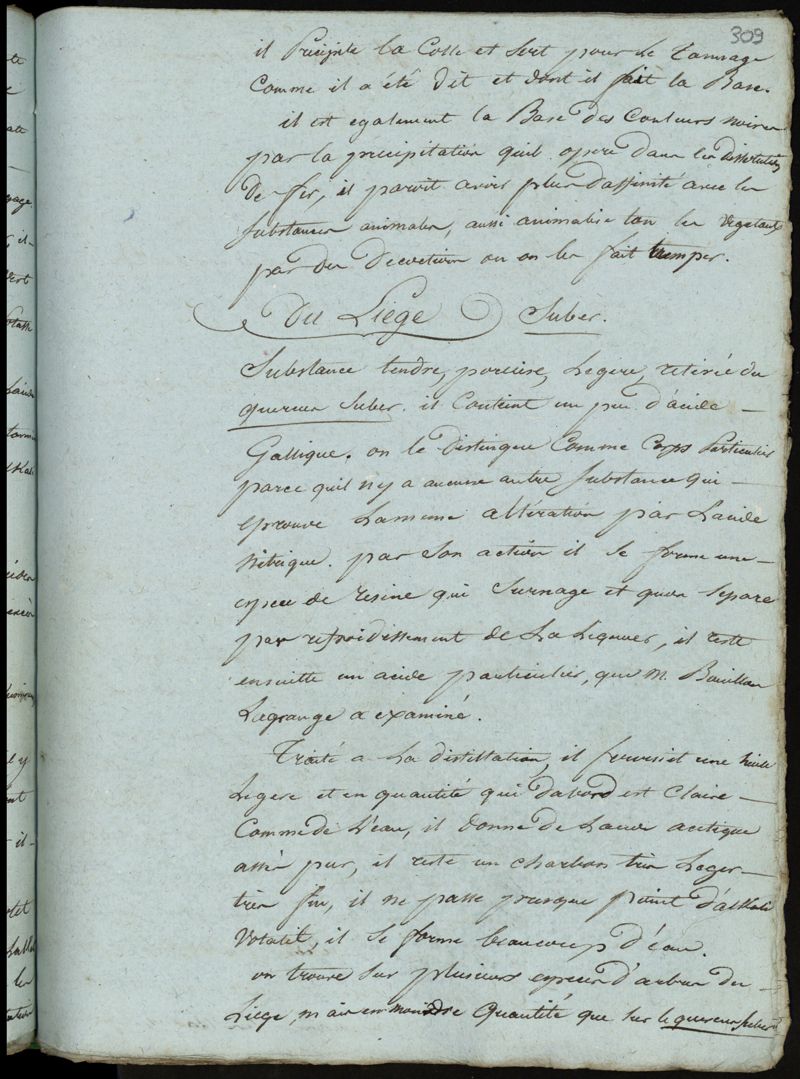 309
il Precipite la Colle et sert pour le Tannage
Comme il a été dit et dont il fait la Base.
il est egalement la Base des Couleurs noires
par la precipitation quil opere dans les dissolutions
de fer, il paroit avoir plus daffinité avec les
substances animales, aussi animalise ton les vegetaux
par des decoctions ou on les fait tremper.
Du Liège Suber.
Substance tendre, poreuse, Legere, retirée du
quercus Suber. il Contient un peu d'acide
Gallique. on le distingue Comme Corps Particulier
parce quil ny a aucune autre substance qui
eprouve Lameme altération par Lacide
Nitrique. par son action il se forme une
espece de resine qui surnage et quon separe
par refroidissement de La Liqueur, il reste
ensuitte un acide particulier, que M. Bouillon
Lagrange a examiné.
Traité a La distillation, il fournit une huile
Legere et en quantité qui dabord est Claire
Comme de L'eau, il donne de Lacide acetique
assés pur, il reste un charbon tres Leger
tres fin, il ne passe presque point d'alkali
Volatil, il se forme beaucoup d'eau.
on trouve sur plusieurs especes d'arbres du
Liege, mais en moindre Quantité que sur le quercus suber